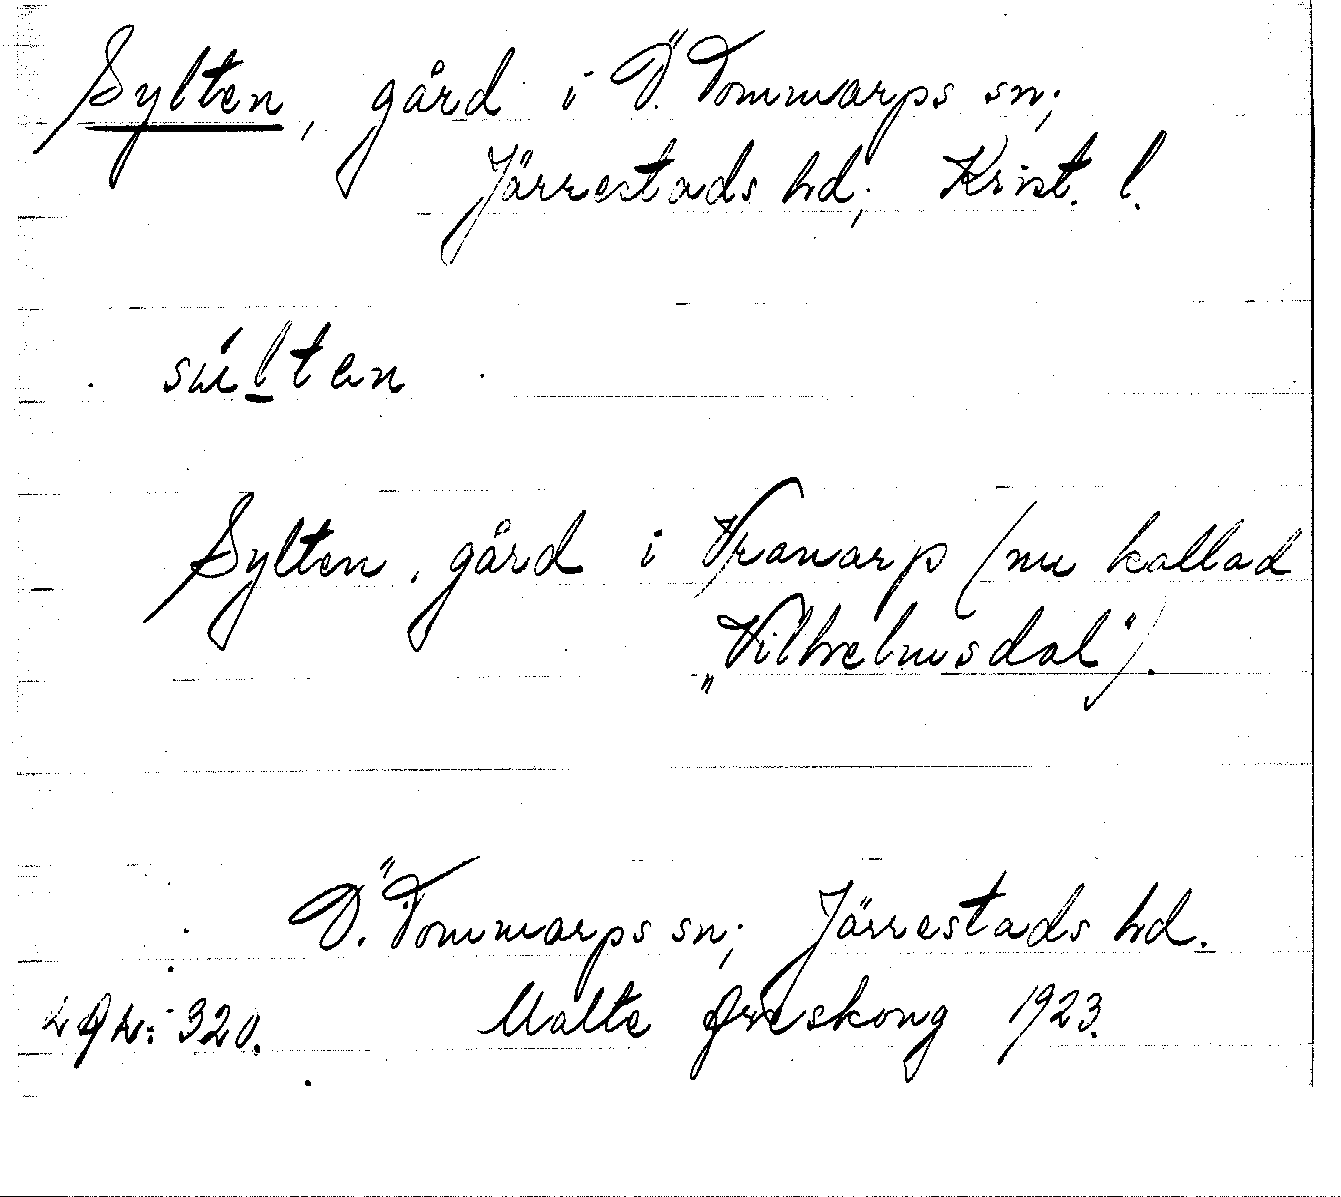 Sylten, gård i Ö. Tommarps sn;
Järrestads hd; Krist. l.
Sylten, gård i Vranarp (nu kallad
„Vilhelmsdal").
Ö. Tommarps sn; Järrestads hd.
320. Malte 1923.